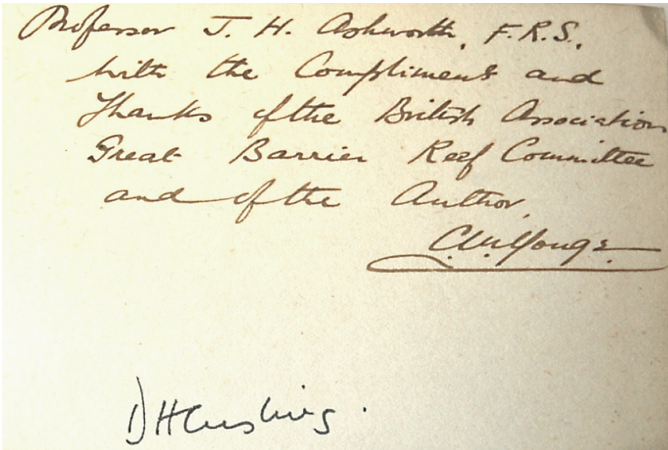 Professor J. H. Ashworth, F.R.S.,
with the Compliments and
Thanks of the British Association
Great Barrier Reef Committee
and of the Author,
C.M. Yonge.
D H Cushing.